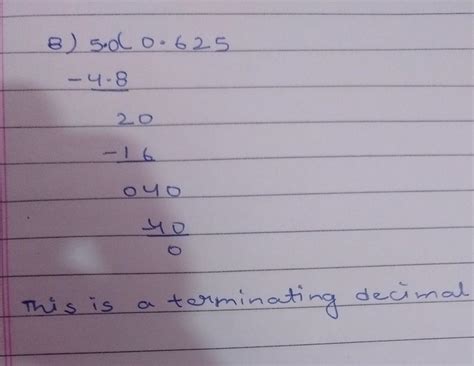 8) 5.0( 0.625
-4.8
20
-16
040
40
0
This is a terminating decimal